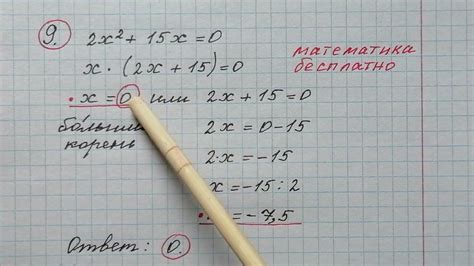 9.
2x² + 15x = 0
x · (2x + 15) = 0
математика
бесплатно
· x = 0 или 2x + 15 = 0
больший
корень
2x = 0 - 15
2·x = -15
x = -15 : 2
= -7,5
Ответ: 0.